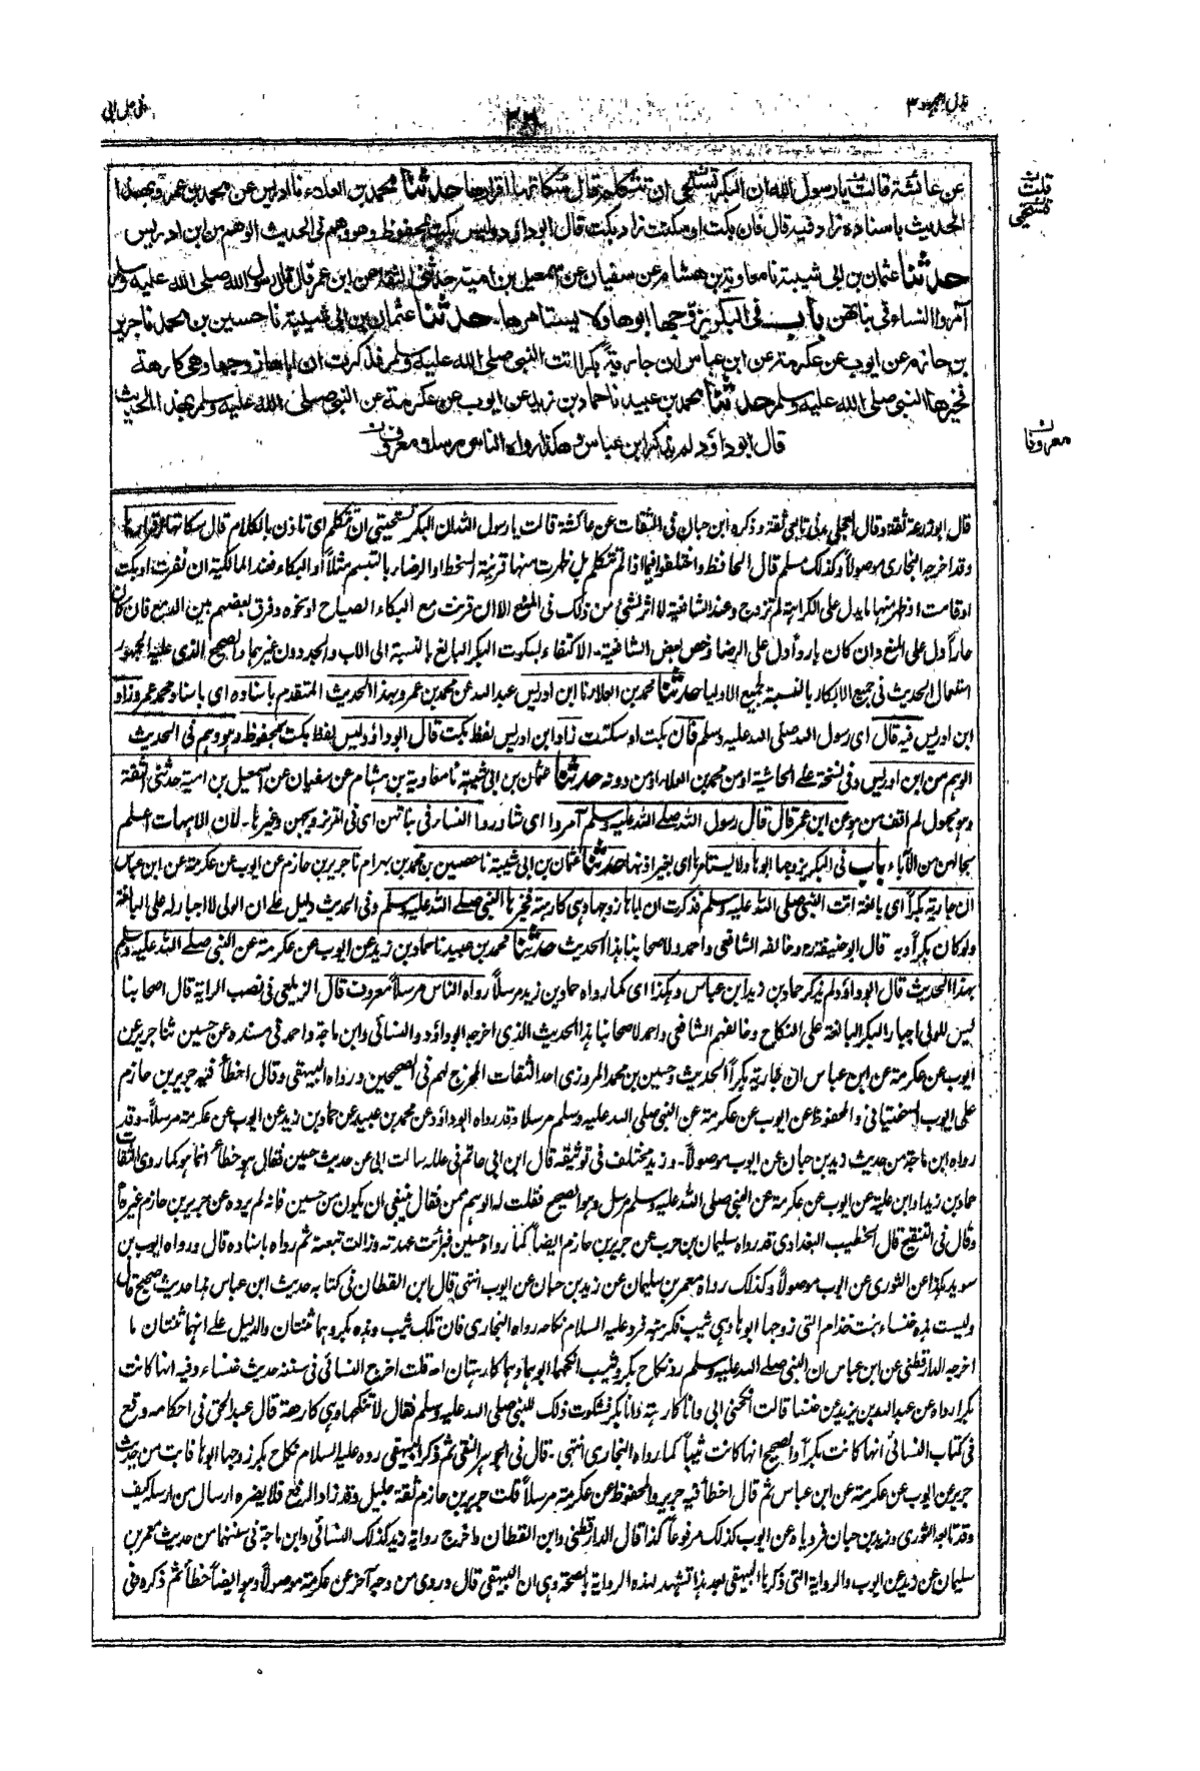 بذل المجهود ٣
عن عائشة قالت يارسول الله ان البكر تستحيى ان تتكلم قال سكاتها اقرارها حدثنا محمد بن العلاء نا ابن ادريس عن محمد بن عمرو بهذا
الحديث باسناده زاد فيه قال فان بكت او سكتت زاد بكت قال ابوداؤد وليس بكت بمحفوظ وهو وهم فى الحديث الوهم من ابن ادريس
حدثنا عثمان بن ابى شيبة نا معاوية بن هشام عن سفيان عن اسمعيل بن امية حدثنى الثقة عن ابن عمر قال قال رسول الله صلى الله عليه وسلم
آمروا النساء فى بناتهن باب فى البكر يزوجها ابوها ولا يستامرها حدثنا عثمان بن ابى شيبة نا حسين بن محمد نا جرير
بن حازم عن ايوب عن عكرمة عن ابن عباس ان جارية بكرا اتت النبى صلى الله عليه وسلم فذكرت ان اباها زوجها وهى كارهة
فخيرها النبى صلى الله عليه وسلم حدثنا محمد بن عبيد نا حماد بن زيد عن ايوب عن عكرمة عن النبى صلى الله عليه وسلم بهذا الحديث
قال ابوداؤد لم يذكر ابن عباس وهكذا رواه الناس مرسلا معروف
قال ابوزرعة ثقة وقال العجلى مدنى تابعى ثقة وذكره ابن حبان فى الثقات عن عائشة قالت يارسول الله ان البكر تستحيى ان تتكلم اى تاذن بالكلام قال سكاتها اقرارها
وقد اخرجه البخارى موصولاً وكذلك مسلم قال الحافظ واختلفوا فيما اذا لم تتكلم بل ظهرت منها قرينة السخط او الرضا بالتبسم مثلاً أو البكاء فعند المالكية ان نفرت او بكت
او قامت او ظهر منها ما يدل على الكراهة لم تزوج وعند الشافعية لا اثر لشئ من ذلك فى المنع الا ان قرنت مع البكاء الصياح او نحوه وفرق بعضهم بين الدمع فان كان
حاراً دل على المنع وان كان بارداً دل على الرضا وخص بعض الشافعية الاكتفاء بسكوت البكر البالغ بالنسبة الى الاب والجد دون غيرهما والصحيح الذى عليه الجمهور
استعمال الحديث فى جميع الابكار بالنسبة لجميع الاولياء حدثنا محمد بن العلاء نا ابن ادريس عبد الله عن محمد بن عمرو بهذا الحديث المتقدم باسناده اى باسناد محمد بن عمرو زاد
ابن ادريس فيه قال اى رسول الله صلى الله عليه وسلم فان بكت او سكتت زاد ابن ادريس لفظ بكت قال ابوداؤد وليس لفظ بكت بمحفوظ وهو وهم فى الحديث
الوهم من ابن ادريس وفى نسخة على الحاشية او من محمد بن العلاء او من دونه حدثنا عثمان بن ابى شيبة نا معاوية بن هشام عن سفيان عن اسمعيل بن امية حدثنى الثقة
وهو مجهول لم اقف من هو عن ابن عمر قال قال رسول الله صلى الله عليه وسلم آمروا اى شاوروا النساء فى بناتهن اى فى تزويجهن وغيرها لان الامهات اعلم
بحالهن من الآباء باب فى البكر يزوجها ابوها ولا يستامرها اى بغير اذنها حدثنا عثمان بن ابى شيبة نا حسين بن محمد بن بهرام نا جرير بن حازم عن ايوب عن عكرمة عن ابن عباس
ان جارية بكراً اى بالغة اتت النبى صلى الله عليه وسلم فذكرت ان اباها زوجها وهى كارهة فخيرها النبى صلى الله عليه وسلم وفى الحديث دليل على ان الولى لا اجبار له على البالغة
ولو كان بكراً وبه قال ابوحنيفة وخالفه الشافعى واحمد ولاصحابنا هذا الحديث حدثنا محمد بن عبيد نا حماد بن زيد عن ايوب عن عكرمة عن النبى صلى الله عليه وسلم
بهذا الحديث قال ابوداؤد ولم يذكر حماد بن زيد ابن عباس وهكذا اى كما رواه حماد بن زيد مرسلاً رواه الناس مرسلاً معروف قال الزيلعى فى نصب الراية قال اصحابنا
ليس للولى اجبار البكر البالغة على النكاح وخالفهم الشافعى واحمد لاصحابنا هذا الحديث الذى اخرجه ابوداؤد والنسائى وابن ماجة واحمد فى مسنده عن حسين ثنا جرير عن
ايوب عن عكرمة عن ابن عباس ان جارية بكراً الحديث وحسين بن محمد المروزى احد الثقات المخرج لهم فى الصحيحين ورواه البيهقى وقال اخطأ فيه جرير بن حازم
على ايوب السختيانى والمحفوظ عن ايوب عن عكرمة عن النبى صلى الله عليه وسلم مرسلا وقد رواه ابوداؤد عن محمد بن عبيد عن حماد بن زيد عن ايوب عن عكرمة مرسلاً وقد
رواه ابن ماجة من حديث زيد بن حبان عن ايوب موصولاً وزيد مختلف فى توثيقه قال ابن ابى حاتم فى علله سالت ابى عن حديث حسين فقال هو خطأ انما هو كما روى الثقات
حماد بن زيد وابن علية عن ايوب عن عكرمة عن النبى صلى الله عليه وسلم مرسل وهو الصحيح فقلت له الوهم ممن فقال ينبغى ان يكون من حسين فانه لم يروه عن جرير بن حازم غيره
وقال فى التنقيح قال الخطيب البغدادى قد رواه سليمان بن حرب عن جرير بن حازم ايضاً كما رواه حسين فبرأت عهدته وزالت تبعته ثم رواه باسناده قال ورواه ايوب بن
سويد هكذا عن الثورى عن ايوب موصولاً وكذلك رواه معمر بن سليمان عن زيد بن حبان عن ايوب انتهى قال ابن القطان فى كتابه حديث ابن عباس هذا حديث صحيح قال
وليست هذه خنساء بنت خذام التى زوجها ابوها وهى ثيب فكرهته فرد عليه السلام نكاحه رواه البخارى فان تلك ثيب وهذه بكر وهما ثنتان والدليل على انهما ثنتان ما
اخرجه الدارقطنى عن ابن عباس ان النبى صلى الله عليه وسلم رد نكاح بكر وثيب انكحهما ابوهما وهما كارهتان اه قلت اخرج النسائى فى سننه حديث خنساء وفيه انها كانت
بكرا رواه عن عبد الله بن يزيد عن خنسا قالت انكحنى ابى وانا كارهة وانا بكر فشكوت ذلك للنبى صلى الله عليه وسلم فقال لا تنكحها وهى كارهة قال عبد الحق فى احكامه وقع
فى كتاب النسائى انها كانت بكراً والصحيح انها كانت ثيباً كما رواه البخارى انتهى قال فى الجوهر النقى ثم ذكر البيهقى رده عليه السلام نكاح بكر زوجها ابوها فابت من حديث
جرير عن ايوب عن عكرمة عن ابن عباس ثم قال اخطأ فيه جرير والمحفوظ عن عكرمة مرسلاً قلت جرير بن حازم ثقة جليل وقد زاد الرفع فلا يضره ارسال من ارسله كيف
وقد تابعه الثورى وزيد بن حبان فروياه عن ايوب كذلك مرفوعاً كذا قال الدارقطنى وابن القطان واخرج رواية زيد كذلك النسائى وابن ماجة فى سننهما من حديث معمر بن
سليمان عن زيد عن ايوب والرواية التى ذكرها البيهقى بعد هذا تشهد لهذه الرواية بالصحة وهى ان البيهقى قال وروى من وجه آخر عن عكرمة موصولاً وهو ايضاً خطأ ثم ذكره فى
قلت
تستحى
معروفا